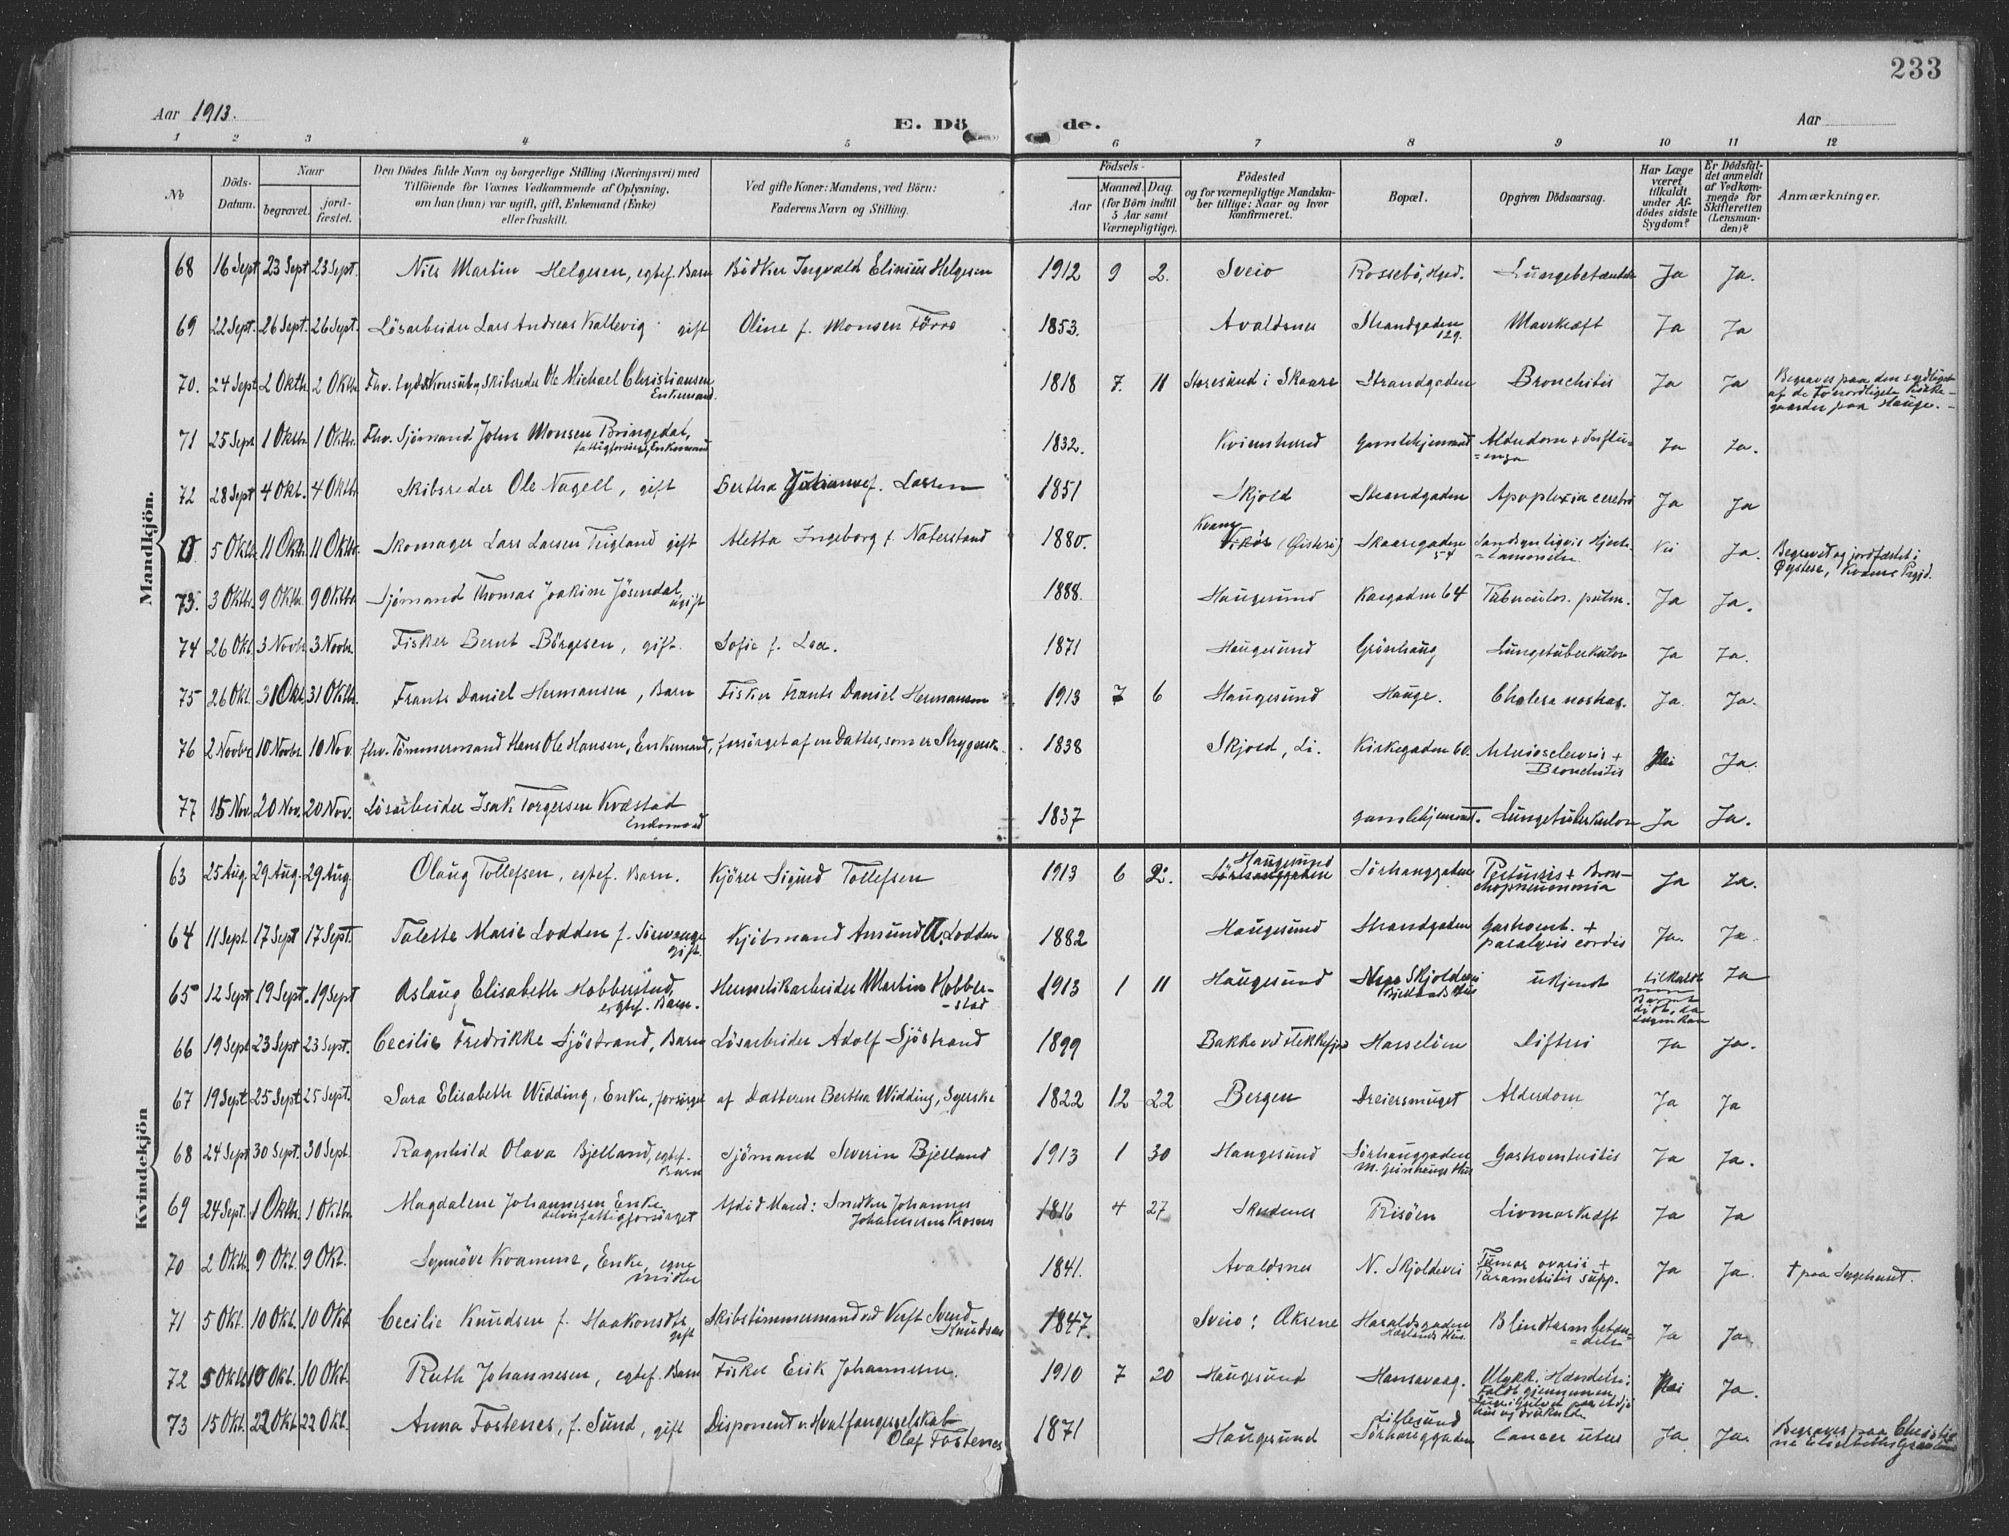 233
Aar 1913. E. Dö de. Aar
1 2 3 4 5 6 7 8 9 10 11 12
No
Döds-Datum.
Naar
begravet. jord-fæstet.
Den Dödes fulde Navn og borgerlige Stilling (Næringsvei) med
Tilföiende for Voxnes Vedkommende af Oplysning,
om han (hun) var ugift, gift, Enkemand (Enke)
eller fraskilt.
Ved gifte Koner: Mandens, ved Börn:
Faderens Navn og Stilling.
Födsels-
Aar Maaned. Dag.
(for Börn indtil
5 Aar samt
Værnepligtige).
Födested
og for værnepligtige Mandska-
ber tillige: Naar og hvor
konfirmeret.
Bopæl.
Opgiven Dödsaarsag.
Har Læge
været
tilkaldt
under Af-
dödes sidste
Sygdom?
Er Dödsfal-
det anmeldt
af Vedkom-
mende for
Skifteretten
(Lensman-
den)?
Anmærkninger.
Mandkjön.
68 16 Sept 23 Sept 23 Sept. Nils Martin Helgesen, egtef. Barn Bödker Ingvald Elinius Helgesen 1912 9 2. Sveio Rossebö, Ja Ja.
69 22 Sept. 26 Sept. 26 Sept. Lösarbeider Lars Andreas Kallevig gift Oline f. Monsen Förre 1853. Avaldsnes Strandgaden 129. Mavekræft Ja Ja
70. 24 Sept 2 Oktb. 2 Oktb. Fhv. Konsul og Skibsreder Ole Michael Christiansen Enkemand. 1818 7. 11 Storesund i Skaare Strandgaden Bronchitis Ja Ja Begraves paa den sydligste af de to nordligste Kirke-gaarder paa Hauge.
71 25 Sept 1 Oktb. 1 Oktb. Fhv. Sjömand John Monsen Bringedal, fattigforsörget, Enkemand 1832. Kvinnherred Gamlehjemmet Alderdom + Influ-=enza Ja Ja.
72 28 Sept 4 Okt. 4 Oktb. Skibsreder Ole Nagell, gift Bertha Johanne f. Larsen 1851 Skjold Strandgaden Apoplexia cerebri Ja Ja
0. 5 Oktb. 11 Oktb. 11 Oktb. Skomager Lars Larsen Teigland gift Aletta Ingeborg f. Naterstad 1880. Kvam Vikör (Östese) Skaaregaden 54 Sandsynligvis Hjerte-=lammelse Nei Ja. Begravet og jordfæstet i Öystese, Kvams Prgjd.
73. 3 Oktb. 9 Oktb. 9 Oktb. Sjömand Thomas Joakim Jösendal, ugift 1888. Haugesund Kaigaden 64 Tuberculos. pulm. Ja Ja.
74 26 Okt. 3 Novb. 3 Novb. Fisker Bernt Börgesen, gift. Sofie f. Lea. 1871 Haugesund Grönhaug Lungetuberkulose Ja Ja.
75 26 Okt. 31 Okt. 31 Oktb. Frants Daniel Hermansen, Barn Fisker Frants Daniel Hermansen 1913 7 6 Haugesund Hauge. Cholera nostras. Ja. Ja.
76 2 Novbr. 10 Novbr. 10 Nov. fhv. Tömmermand Hans Ole Hansen, Enkemand, forsörget af en Datter, som er Strygerske. 1838 Skjold, Li. Kirkegaden 60. Arteriosclerosis + Bronchitis Nei Ja.
77 15 Nov. 20 Nov. 20 Nov. Lösarbeider Isak Torgersen Kvæstad Enkemand 1837 Gamlehjemmet. Lungetuberkulose Ja Ja.
Kvindekjön
63 25 Aug. 29 Aug. 29 Aug. Olaug Tollefsen, egtef. Barn. Kjörer Sigurd Tollefsen 1913 6 2. Haugesund Sörhauggaden Sörhauggaden Pertussis + Bron-chopneumonia Ja Ja.
64 11 Sept. 17 Sept 17 Sept. Talette Marie Lodden f. gift. Kjöbmand Amund A. Lodden 1882 Haugesund Strandgaden Gastroent. + paralysis cordis Ja. Ja.
65 12 Sept 19 Sept. 19 Sept Aslaug Elisabeth Hobberstad, egtef. Barn. Hermetikarbeider Martin Hobber-=stad 1913 1 11 Haugesund Skjoldevei Bjellands Hus ukjendt tilkaldt Barnet dödt, da Lægen kom Ja
66 19 Sept 23 Sept 23 Sept. Cecilie Fredrikke Sjöstrand, Barn Lösarbeider Adolf Sjöstrand 1899 Bakke ved Flekkefjord Hasselöen Difteri Ja Ja.
67 19 Sept 25 Sept 25 Sept. Sara Elisabeth Widding, Enke, forsörget af Datteren Bertha Widding, Syerske 1822 12 22 Bergen Dreiersmuget Alderdom Ja Ja
68 24 Sept 30 Sept. 30 Sept. Ragnhild Olava Bjelland, egtef. Barn Sjömand Severin Bjelland 1913 1 30 Haugesund Sörhauggaden M. Grönhaugs Hus Gastroenteritis Ja Ja.
69 24 Sept. 1 Oktb. 1 Oktb. Magdalene Johannesen Enke delvis fattigforsörget Afdöd Mand: Snedker Johannes Johannesen Krosnes 1816 4 27 Skudenes Risöen Livmorkræft Ja Ja
70 2 Okt. 9 Okt. 9 Okt. Synnöve Kvamme, Enke, egne midler 1841. Avaldsnes N. Skjoldevei Tumor ovarii + Parametritis supp. Ja Ja. † paa Sygehuset.
71 5 Okt. 10 Okt. 10 Okt Cecilie Knudsen f. Haakonsdtr gift Skibstömmermand ved Verft Svend Knudsen 1847. Sveio: Öksene Haraldsgaden Hus. Blindtarmbetæn-=delse Ja Ja.
72 5 Okt. 10 Okt. 10 Okt. Ruth Johannesen, egtef. Barn Fisker Erik Johannesen. 1910 7 20 Haugesund Hansavaag. Ulykk. Hændelse: Faldt gjennem en i gulvet paa et Sjö-hus og druknede Nei Ja.
73 15 Okt. 22 Okt 22 Okt. Anna Fostenes, f. Sund, gift Disponent v. Hvalfangerselskab Olaf Fostenes 1871 Haugesund Lillesund Sörhauggaden Cancer uteri Ja Ja. Begraves paa